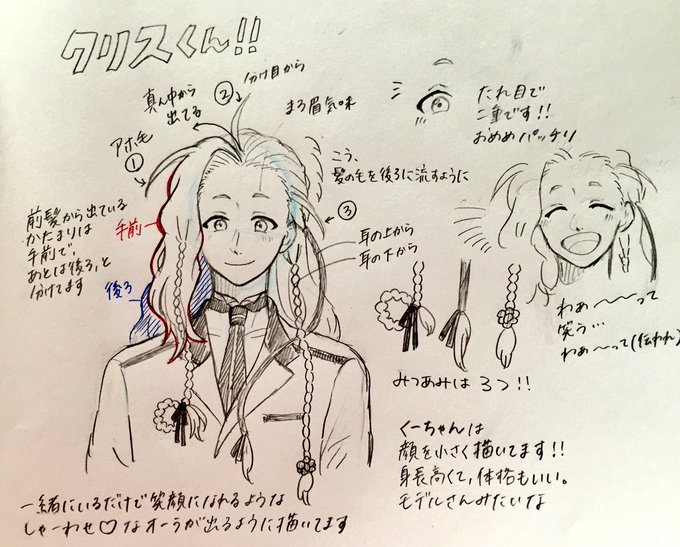 クリスくん!!
分け目から
②
真ん中から
出てる
まろ眉気味
アホ毛
①
こう、
髪の毛を後ろに流すように
③
たれ目で
二重です!!
おめめパッチリ
前髪から出ている
かたまりは
手前で、
あとは後ろ、と
分けてます
手前
後ろ
耳の上から
耳の下から
わぁ〜〜〜って
笑う…
わぁ〜って(伝われ)
みつあみは3つ!!
くーちゃんは
顔を小さく描いてます!!
身長高くて、体格もいい。
モデルさんみたいな
一緒にいるだけで笑顔になれるような
しゃーわせ♡なオーラが出るように描いてます